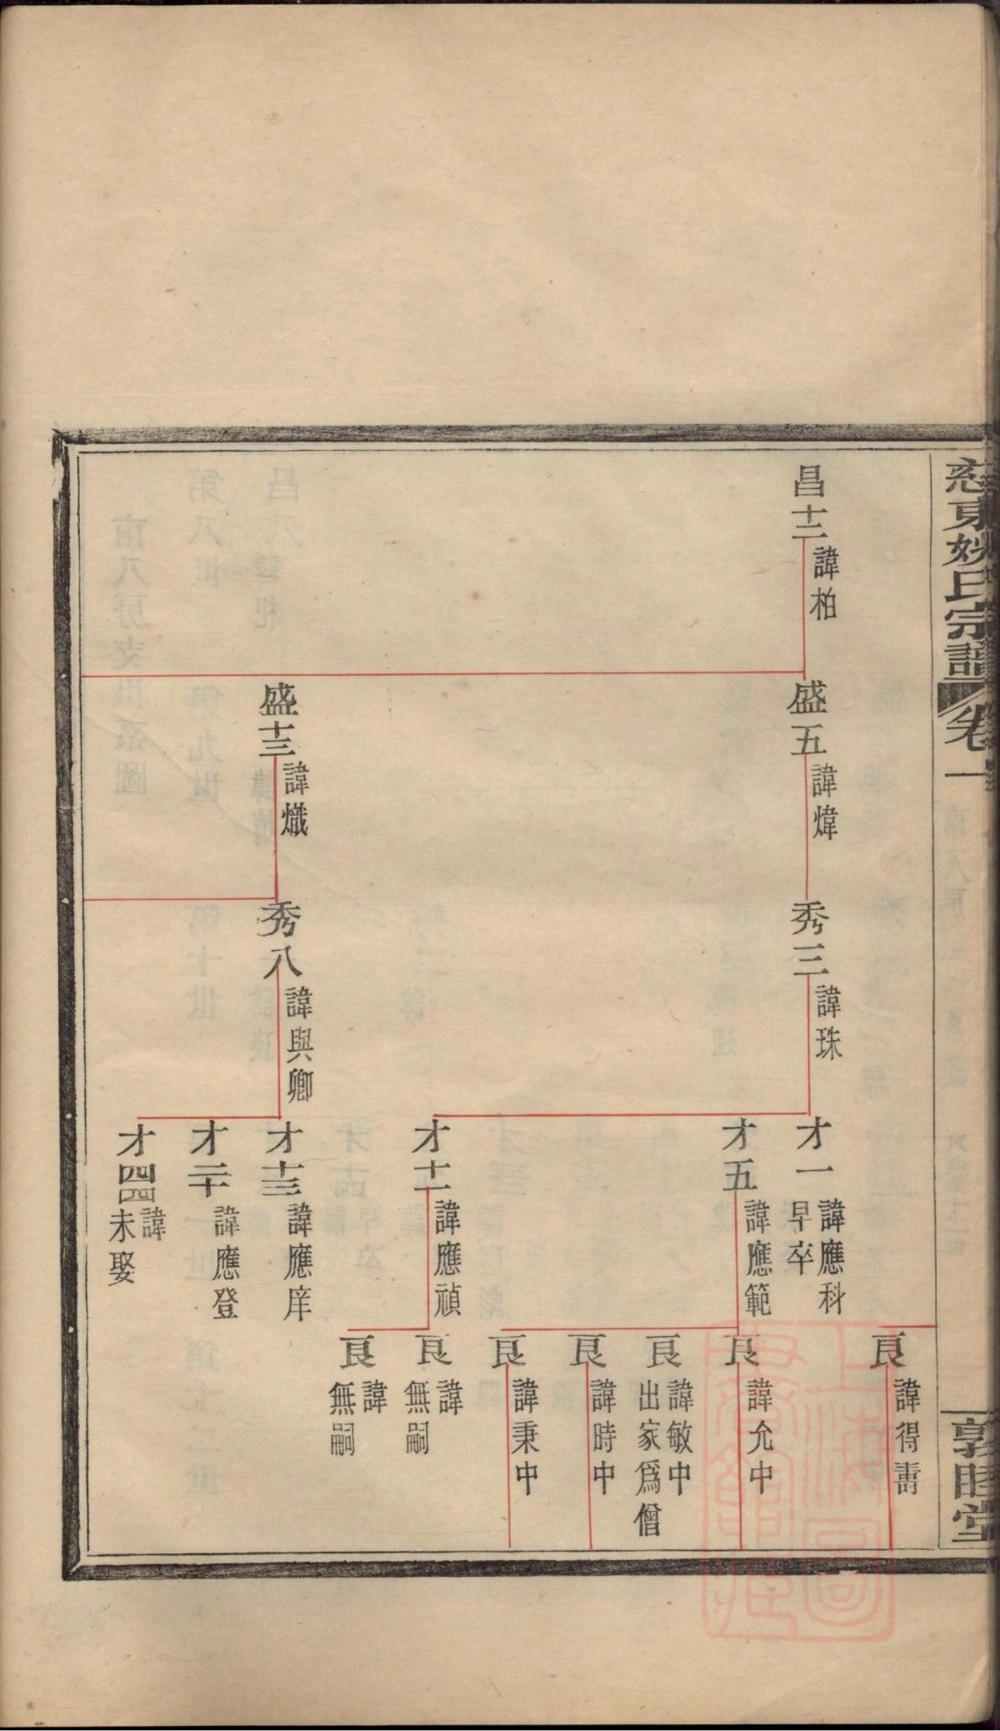 慈東姚氏宗譜
卷一
敦睦堂
昌十二
諱柏
盛五
諱煒
盛十三
諱熾
秀三
諱珠
秀八
諱與卿
才一
諱應科
早卒
才五
諱應範
才十一
諱應禎
才十三
諱應庠
才二十
諱應登
才四四
諱
未娶
良
諱得壽
良
諱允中
良
諱敏中
出家爲僧
良
諱時中
良
諱秉中
良
諱
無嗣
良
諱
無嗣